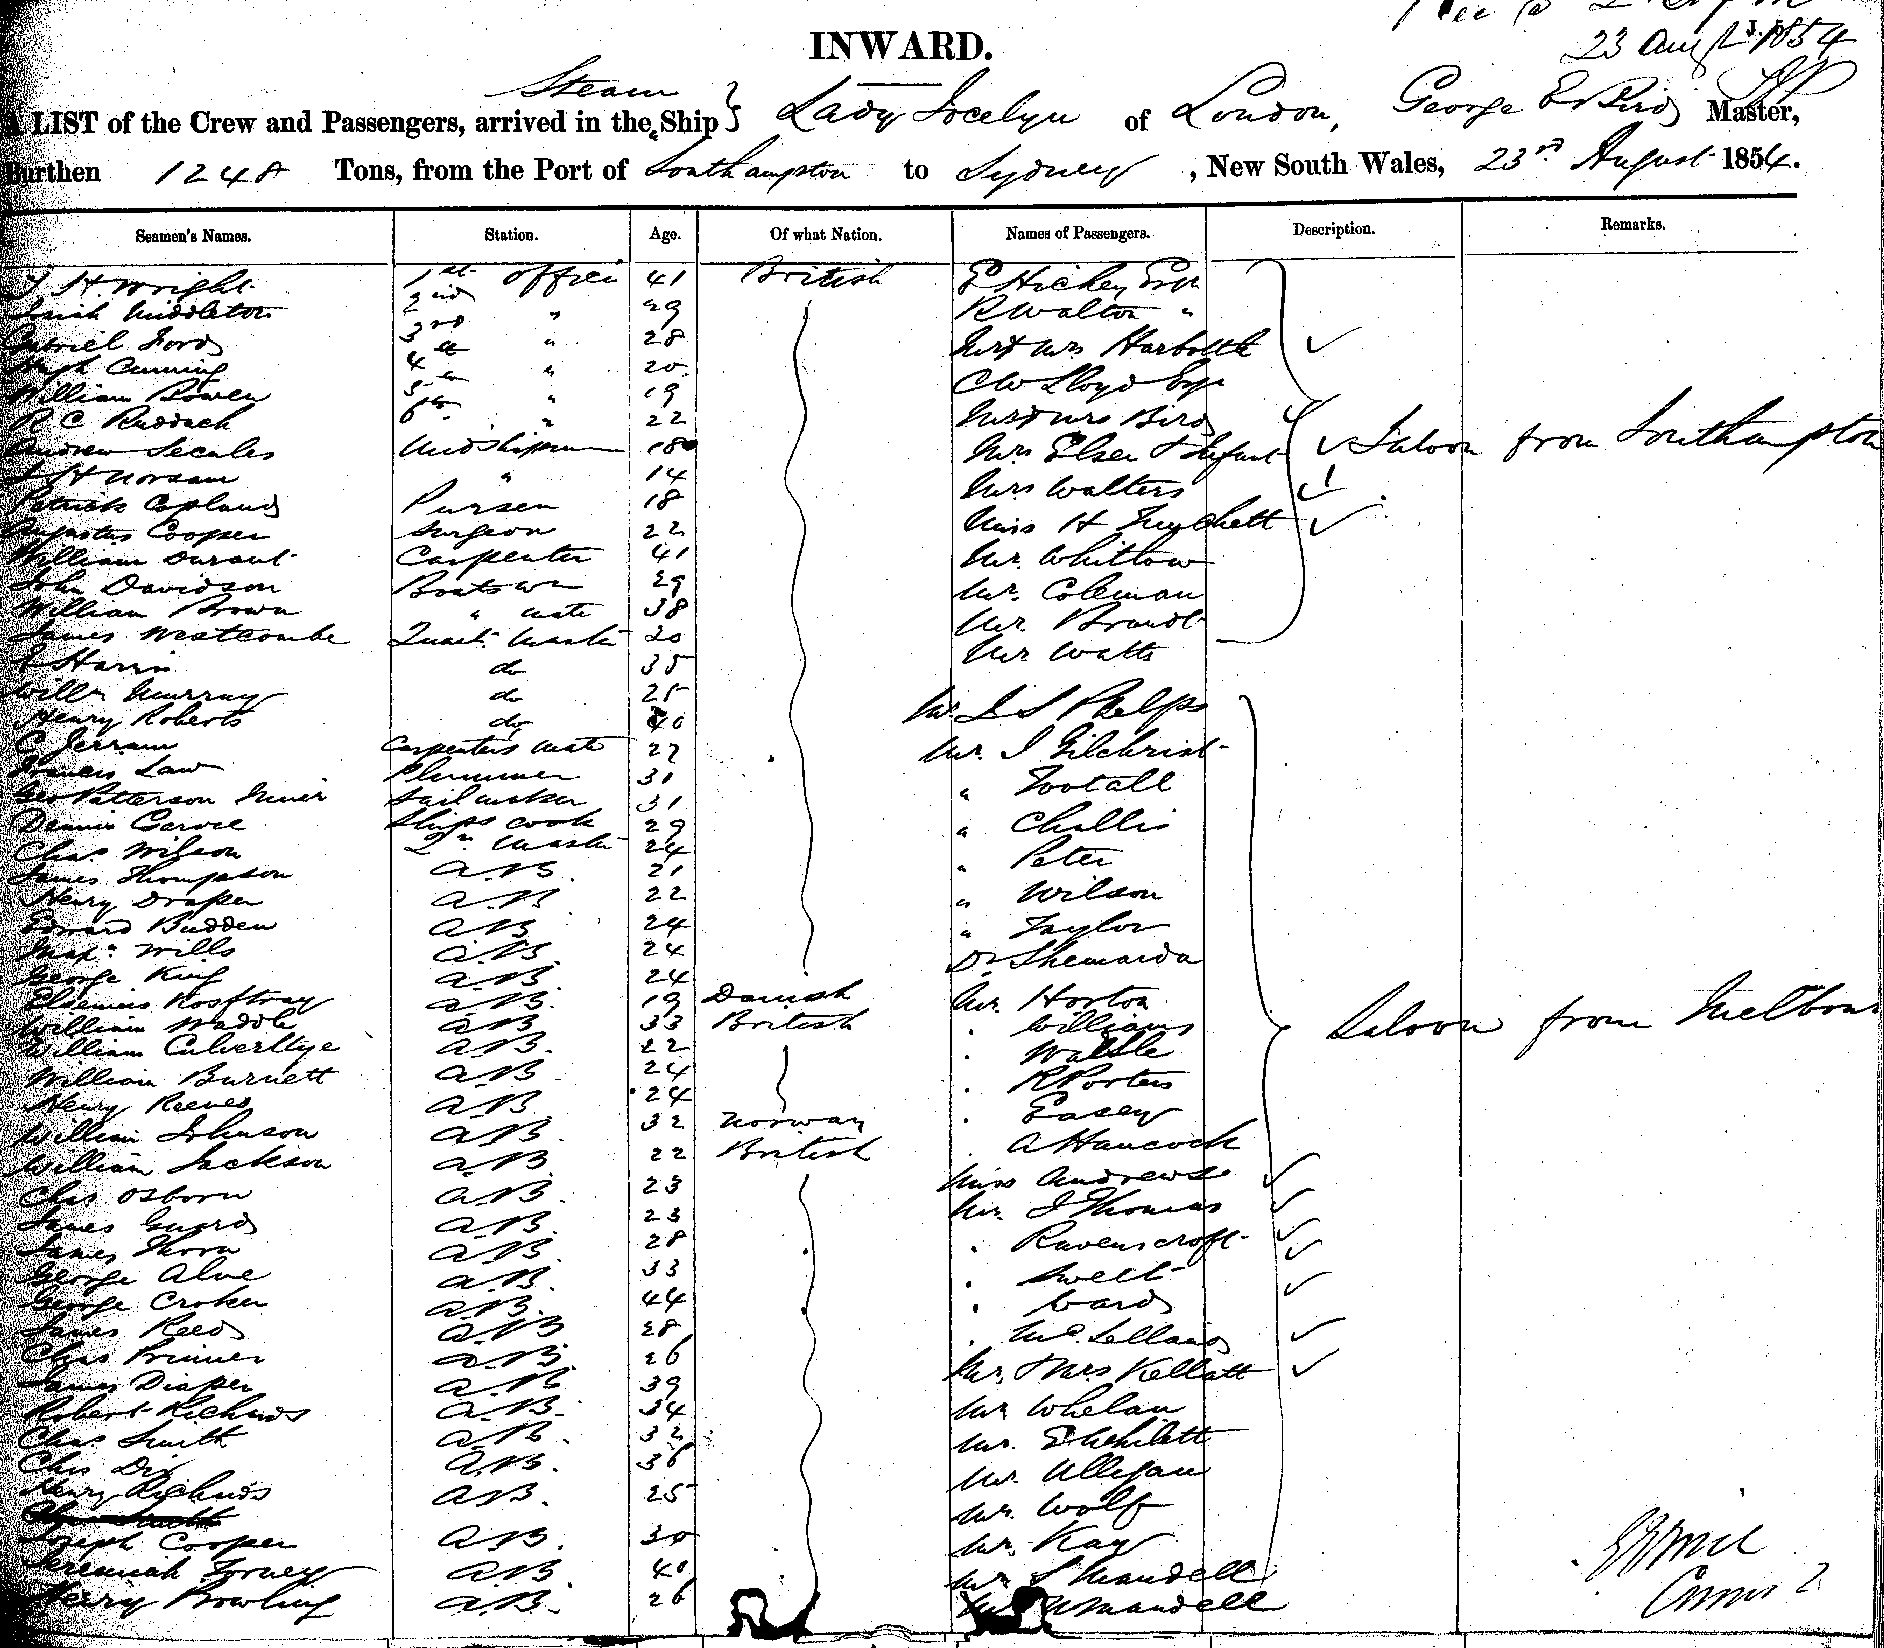 23 Augst 1854
INWARD.
Steam
A LIST of the Crew and Passengers, arrived in the Ship } Lady Jocelyn of London, George E Bird Master,
Burthen 1248 Tons, from the Port of Southampton to Sydney, New South Wales, 23rd August 1854.
Seamen's Names. Station. Age. Of what Nation. Names of Passengers. Description. Remarks.
H Wright 1st Officer 41 British E Hickey Esqr
Middleton 2nd " 29 R Walton "
Gabriel Ford 3rd " 28 Mr & Mrs Harbottle
Hugh Cumming 4th " 20 C W Lloyd Esqr
William Bowen 5th " 19 Mr & Mrs Bird
R C Ruddach 6th " 22 Mrs Elsen & Infant Saloon from Southampton
Andrew Scales Midshipman 18
H Norsan " 14 Mrs Walters
Patrick Copland Purser 18 Miss H
Augustus Cooper Surgeon 22 Mr. Whittow
William Durant Carpenter 41 Mr. Coleman
John Davidson Boatswn 29 Mr Brandt
William Brown " Mate 38 Mr Watts
James Westcombe Quart. Mastr 20
Harris do 35
Willm Murray do 25 Mr. J S Phelps
Henry Roberts do 40
C Jerram Carpenters Mate 27 Mr. J Gilchrist
Francis Law Plummer 31 " Tootall
Geo Patterson Sailmaker 31 " Challis
Dennis Ships Cook 29 " Peter
Chas Wilson Qr. Mastr 24 " Wilson
James Thompson A.B. 21 " Taylor
Henry Draper A.B. 22 Dr Shemarda
Edward Budden A.B. 24
Wills A.B. 24
George King A.B. 24 Mr. Horton
A.B. 19 Danish . Williams
William Waddle A.B. 33 British . Saloon from Melbourne
William A.B. 22 . R Porter
William Burnett A.B. 24 . Casey
Henry Reeves A.B. 24
William Johnson A.B. 32 Norway . A Hancock
William Jackson A.B. 22 British Miss Andrews
Chas Osborn A.B. 23 Mr. J Thomas
James Guard A.B. 23 . Ravenscroft
James Thorn A.B. 28 . Swell
George Alne A.B. 33 . Ward
George Croker A.B. 44 . McLelland
James Reed A.B. 28 Mr. & Mrs Kellatt
Chas A.B. 26 Mr Whelan
James Diaper A.B. 39
Robert Richards A.B. 34
Chas. Smith A.B. 32
Chas Dix A.B. 36 Mr. Wolf
Henry Richards A.B. 25 Mr. Kay
Joseph Cooper A.B. 30 Mr S Mandell
Jeremiah Torney A.B. 40 Mandell
Henry Bowling A.B. 26